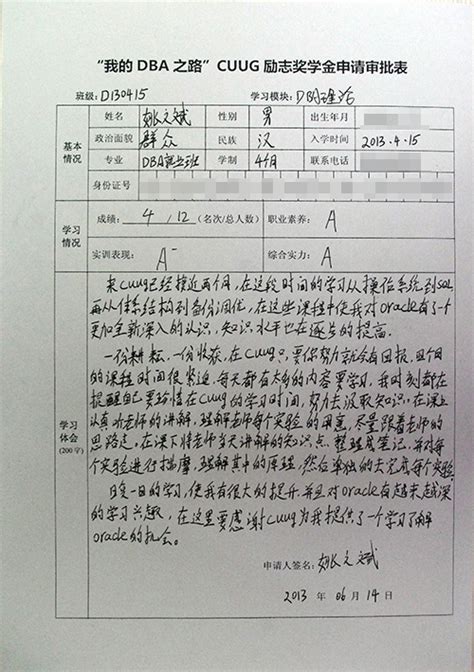 “我的 DBA 之路”CUUG 励志奖学金申请审批表
班级:D130415 学习模块:
基本情况
姓名 姚文斌 性别 男 出生年月
政治面貌 群众 民族 汉 入学时间 2013.4.15
专业 DBA就业班 学制 4个月 联系电话
身份证号
学习情况
成绩: 4 / 12 (名次/总人数) 职业素养: A
实训表现: A- 综合实力: A
学习体会
(200字)
来CUUG已经接近两个月,在这段时间的学习从操作系统到SQL
再从体系结构到备份调优,在这些课程中使我对oracle有了一个
更加全新深入的认识,知识水平也在逐步的提高.
一份耕耘,一份收获,在CUUG只要你努力就会有回报,四个月
的课程时间很紧迫,每天都有太多的内容要学习,我时刻都在
提醒自己要珍惜在CUUG的学习时间,努力去汲取知识,在课上
认真听老师的讲解,理解老师每个实验的用意,尽量跟着老师的
思路走.在课下将老师当天讲解的知识点,整理成笔记,并对每
个实验进行揣摩,理解其中的原理,然后单独的去完成每个实验.
日复一日的学习,使我有很大的提升,并且对oracle有越来越深
的学习兴趣,在这里要感谢CUUG为我提供了一个学习了解
oracle的机会.
申请人签名: 姚文斌
2013 年 06 月 14 日